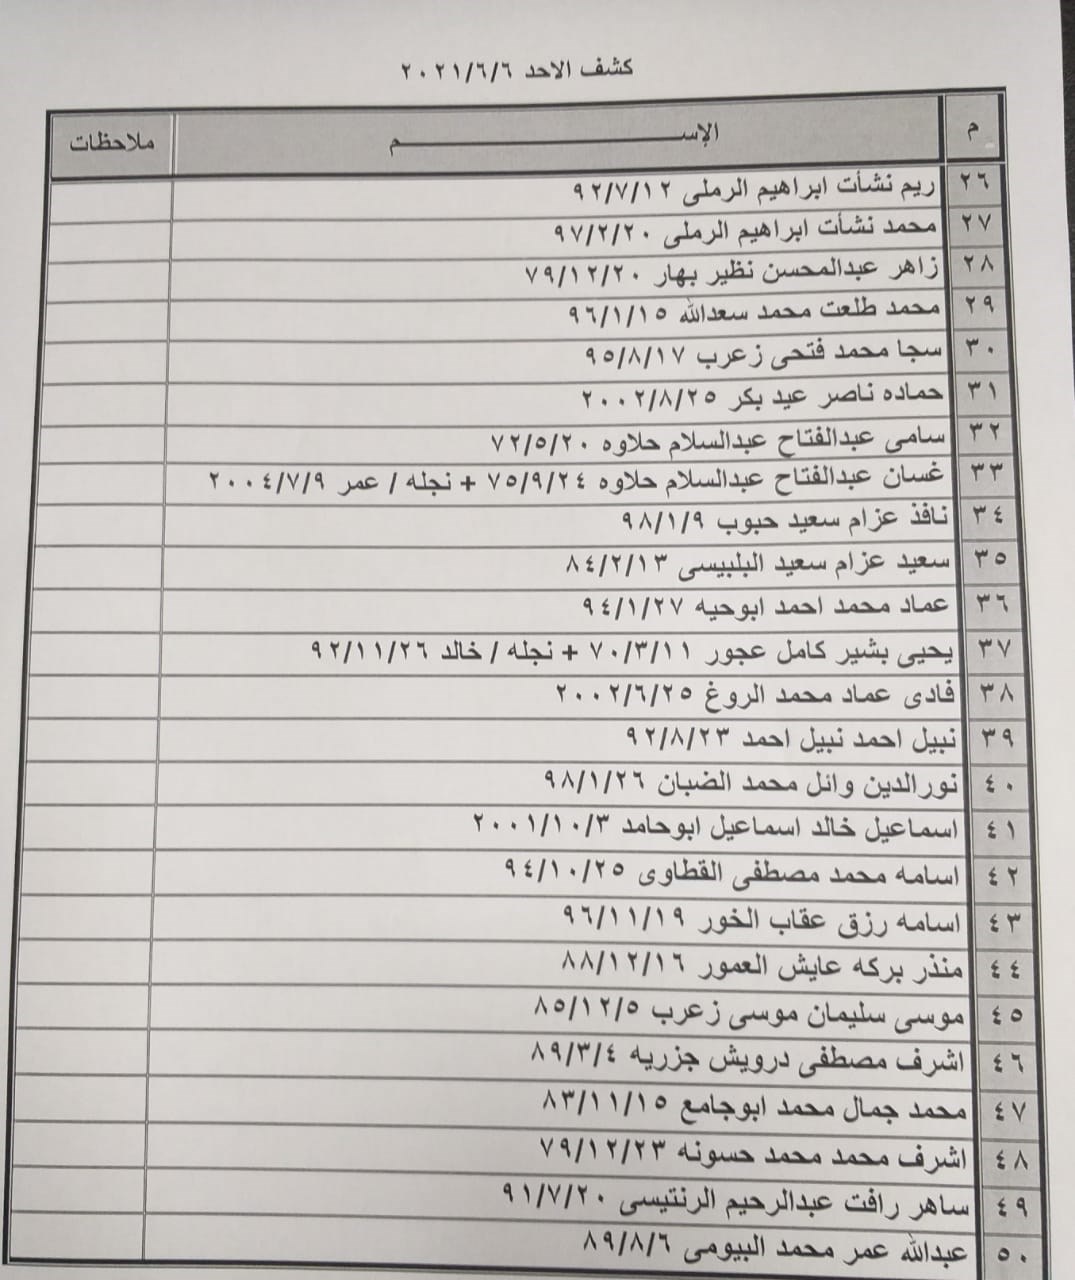 كشف الاحد ٢٠٢١/٦/٦
م الإســـــــــــــــــــم ملاحظات
٢٦ ريم نشأت ابراهيم الرملى ٩٢/٧/١٢
٢٧ محمد نشأت ابراهيم الرملى ٩٧/٢/٢٠
٢٨ زاهر عبدالمحسن نظير بهار ٧٩/١٢/٢٠
٢٩ محمد طلعت محمد سعدالله ٩٦/١/١٥
٣٠ سجا محمد فتحى زعرب ٩٥/٨/١٧
٣١ حماده ناصر عيد بكر ٢٠٠٢/٨/٢٥
٣٢ سامى عبدالفتاح عبدالسلام حلاوه ٧٢/٥/٢٠
٣٣ غسان عبدالفتاح عبدالسلام حلاوه ٧٥/٩/٢٤ + نجله / عمر ٢٠٠٤/٧/٩
٣٤ نافذ عزام سعيد حبوب ٩٨/١/٩
٣٥ سعيد عزام سعيد البلبيسى ٨٤/٢/١٣
٣٦ عماد محمد احمد ابوحيه ٩٤/١/٢٧
٣٧ يحيى بشير كامل عجور ٧٠/٣/١١ + نجله / خالد ٩٢/١١/٢٦
٣٨ فادى عماد محمد الروغ ٢٠٠٢/٦/٢٥
٣٩ نبيل احمد نبيل احمد ٩٢/٨/٢٣
٤٠ نورالدين وائل محمد الضبان ٩٨/١/٢٦
٤١ اسماعيل خالد اسماعيل ابوحامد ٢٠٠١/١٠/٣
٤٢ اسامه محمد مصطفى القطاوى ٩٤/١٠/٢٥
٤٣ اسامه رزق عقاب الخور ٩٦/١١/١٩
٤٤ منذر بركه عايش العمور ٨٨/١٢/١٦
٤٥ موسى سليمان موسى زعرب ٨٥/١٢/٥
٤٦ اشرف مصطفى درويش جزريه ٨٩/٣/٤
٤٧ محمد جمال محمد ابوجامع ٨٣/١١/١٥
٤٨ اشرف محمد محمد حسونه ٧٩/١٢/٢٣
٤٩ ساهر رافت عبدالرحيم الرنتيسى ٩١/٧/٢٠
٥٠ عبدالله عمر محمد البيومى ٨٩/٨/٦